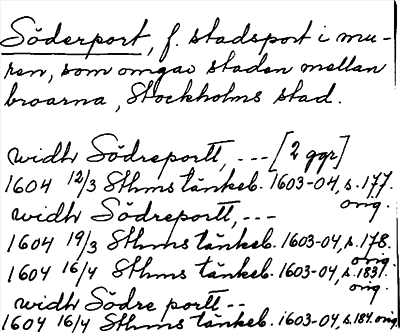 Söderport, f. stadsport i mu-
ren, som omgav staden mellan
broarna, Stockholms stad.
widh Södreportt, --- [2 ggr]
1604 12/3 Sthms tänkeb. 1603-04, s. 177.
orig.
widh Södreportt, ---
1604 19/3 Sthms tänkeb. 1603-04, s. 178.
orig.
1604 16/4 Sthms tänkeb. 1603-04, s. 183.
orig.
widh Södre portt --
1604 16/4 Sthms tänkeb. 1603-04, s. 184. orig.